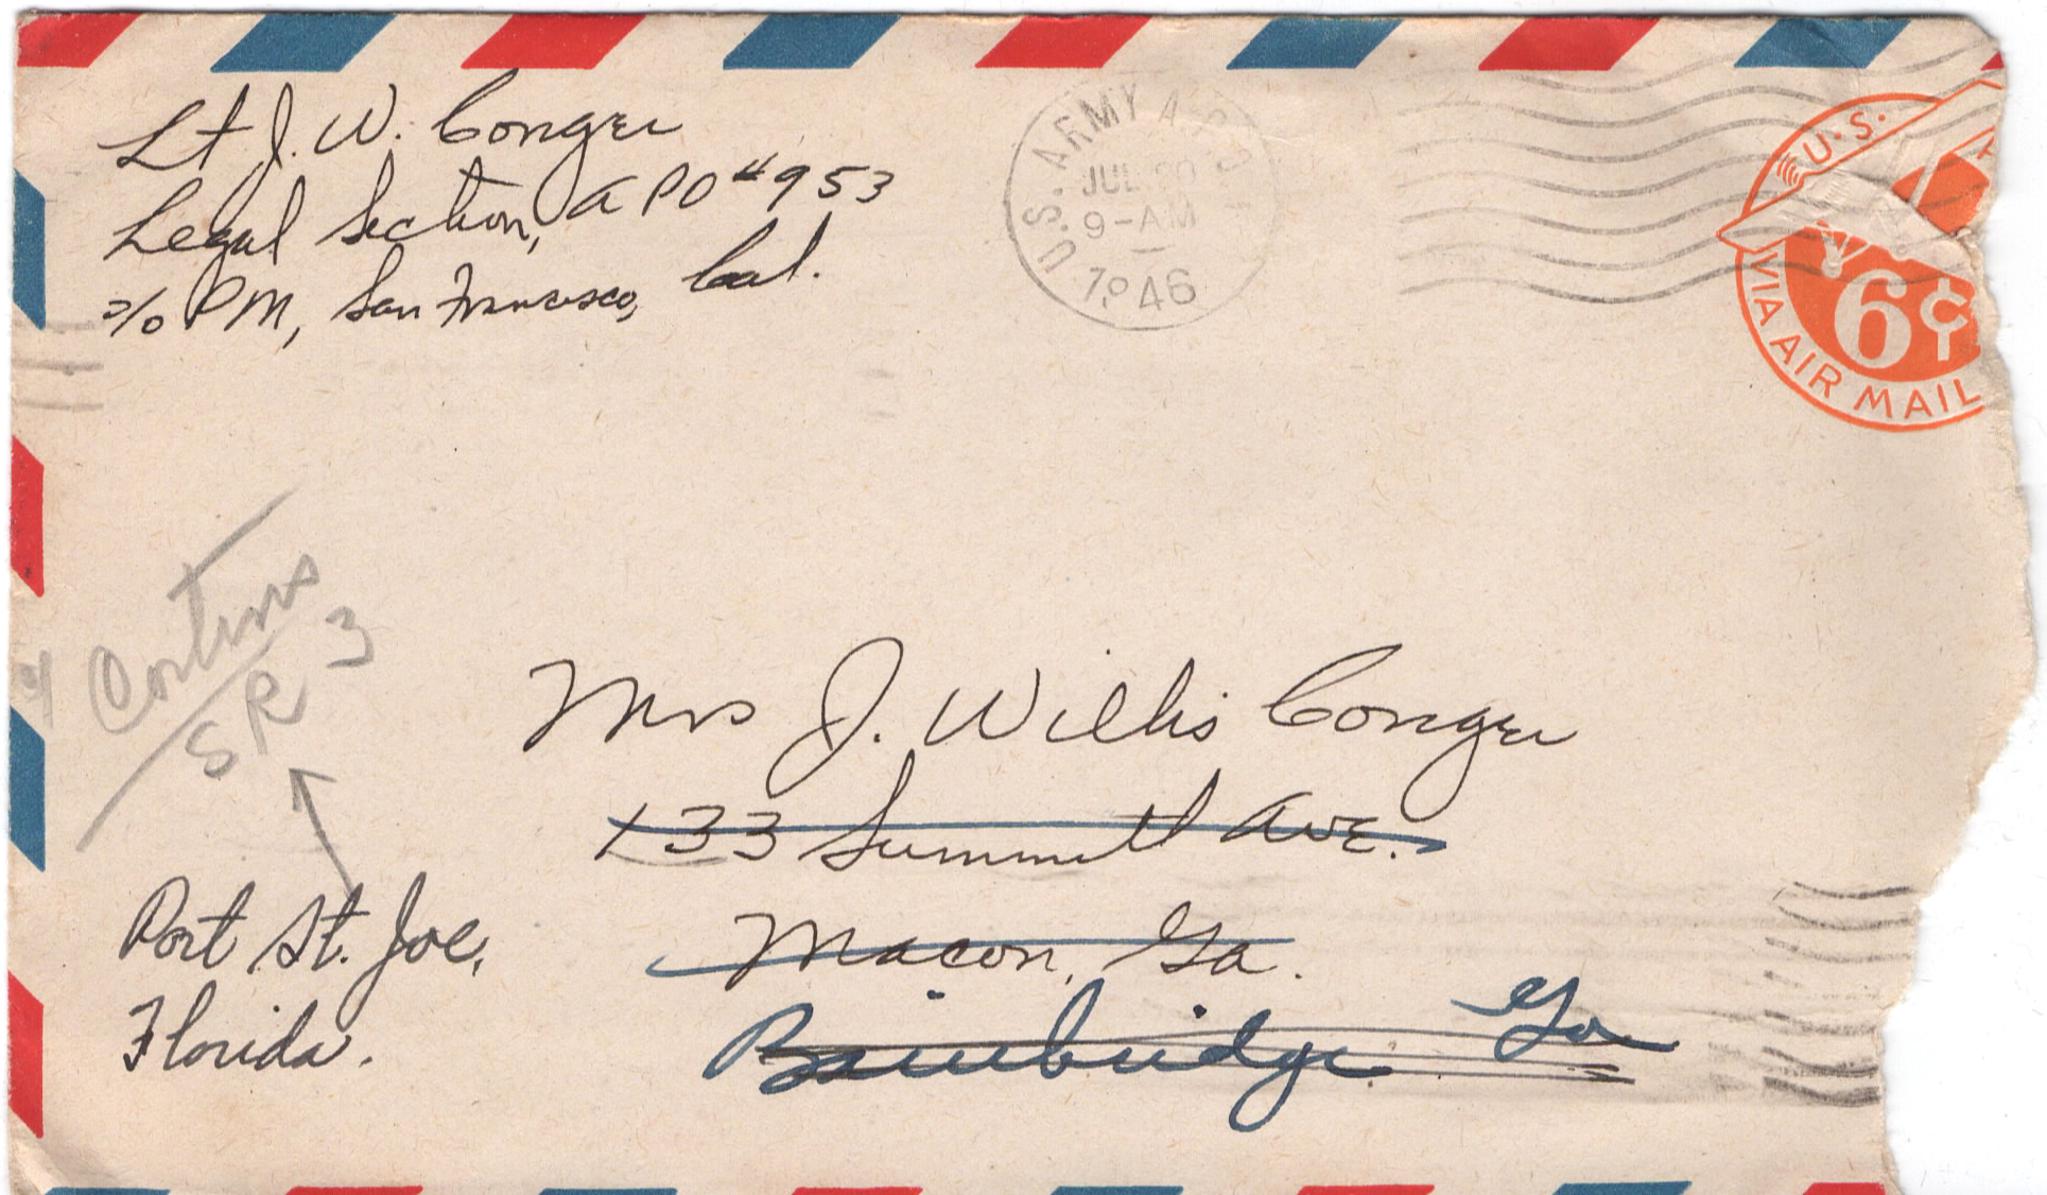 Lt J. W. Conger
Legal Section, APO #953
c/o PM, San Francisco, Cal.
U.S. ARMY A.P.O.
JUL
9-AM
1946
U.S.
6¢
VIA AIR MAIL
SR 3
Mrs J. Willis Conger
133 Summitt Ave.
Macon, Ga.
Bainbridge Ga
Port St. Joe,
Florida.